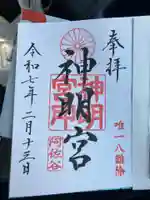 奉拝
唯一八難除
神明宮
神明宮
阿佐谷
令和七年二月十三日